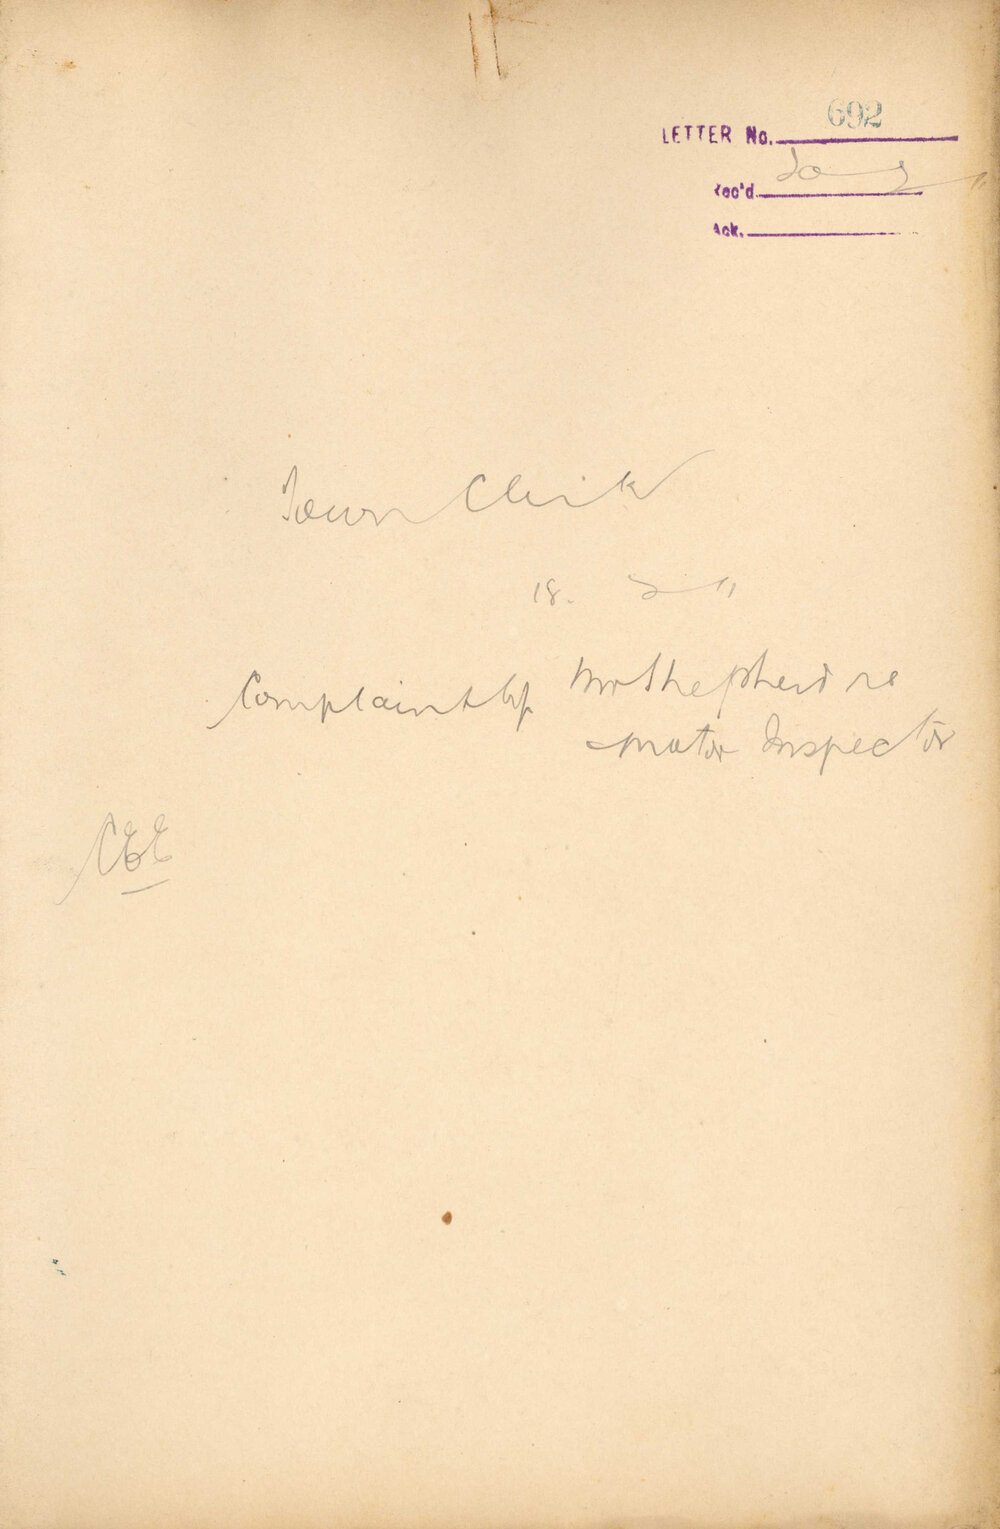 LETTER No. 692
Rec'd 20 2 11
Ack.
Town Clerk
18. 2 11
Complaint by Mr Shepherd re
Motor Inspector